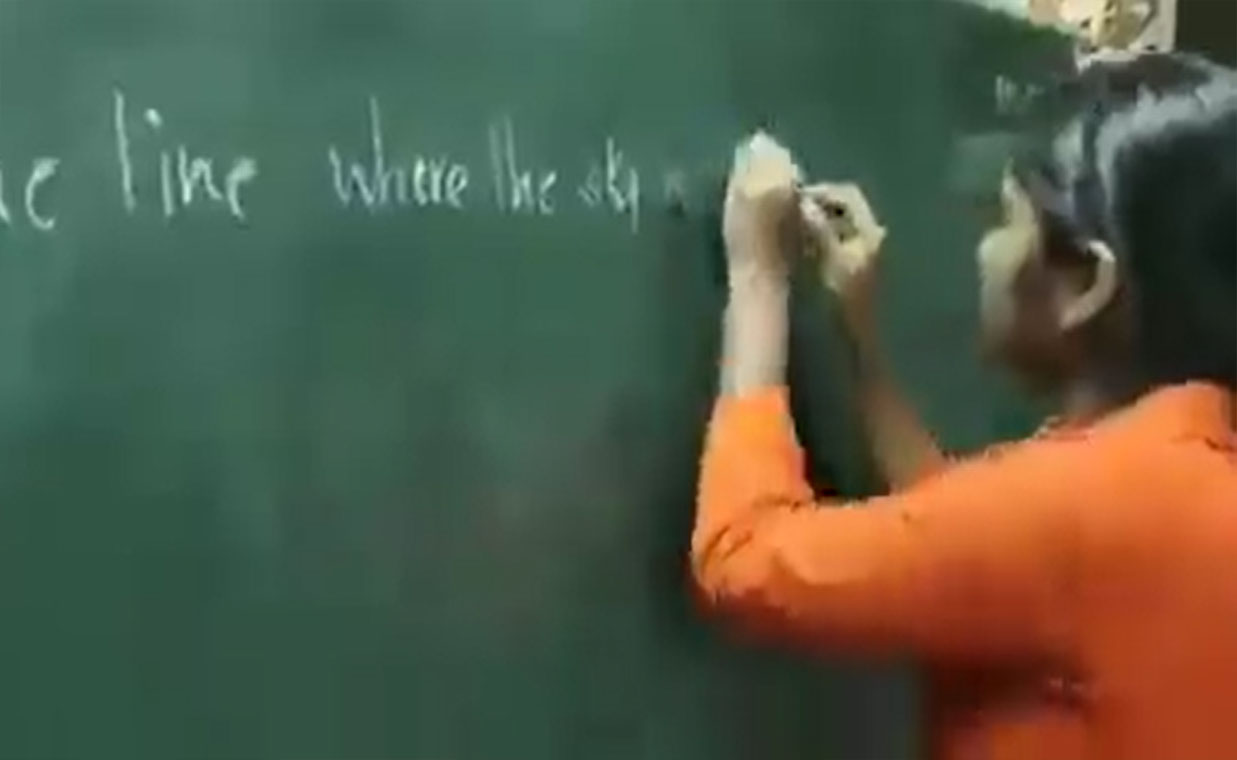 line where the sky